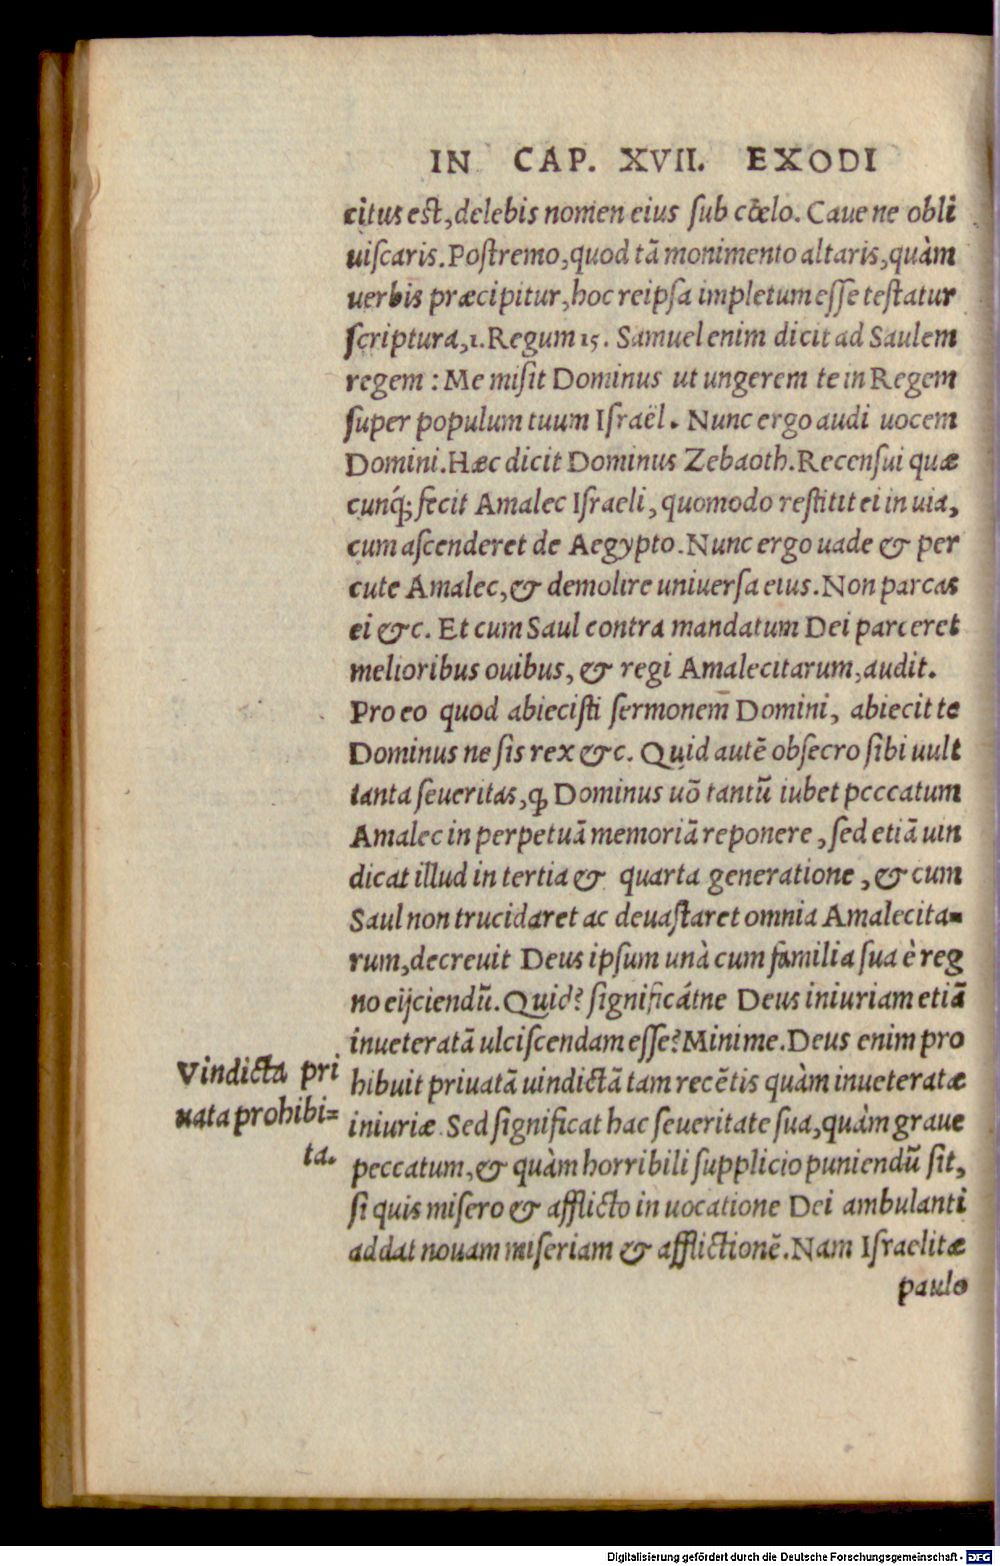 IN CAP. XVII. EXODI
citus est, delebis nomen eius sub cœlo. Caue ne obli
uiscaris. Postremo, quod tã monimento altaris, quàm
uerbis præcipitur, hoc reipsa impletum esse testatur
scriptura, 1. Regum 15. Samuel enim dicit ad Saulem
regem : Me misit Dominus ut ungerem te in Regem
super populum tuum Israël. Nunc ergo audi uocem
Domini. Hæc dicit Dominus Zebaoth. Recensui quæ
cunq́; fecit Amalec Israeli, quomodo restitit ei in uia,
cum ascenderet de Aegypto. Nunc ergo uade & per
cute Amalec, & demolire uniuersa eius. Non parcas
ei &c. Et cum Saul contra mandatum Dei parceret
melioribus ouibus, & regi Amalecitarum, audit.
Pro eo quod abiecisti sermonem̄ Domini, abiecit te
Dominus ne sis rex &c. Quid autẽ obsecro sibi uult
tanta seueritas, ꝙ Dominus nõ tantũ iubet peccatum
Amalec in perpetuã memoriã reponere, sed etiã uin
dicat illud in tertia & quarta generatione, & cum
Saul non trucidaret ac deuastaret omnia Amalecita=
rum, decreuit Deus ipsum unà cum familia sua è reg
no eijciendũ. Quid? significátne Deus iniuriam etiã
inueteratã ulciscendam esse? Minime. Deus enim pro
hibuit priuatã uindictã tam recẽtis quàm inueteratæ
iniuriæ. Sed significat hac seueritate sua, quàm graue
peccatum, & quàm horribili supplicio puniendũ sit,
si quis misero & afflicto in uocatione Dei ambulanti
addat nouam miseriam & afflictionẽ. Nam Israelitæ
paulo
Vindicta pri
uata prohibi=
ta.
Digitalisierung gefördert durch die Deutsche Forschungsgemeinschaft - DFG